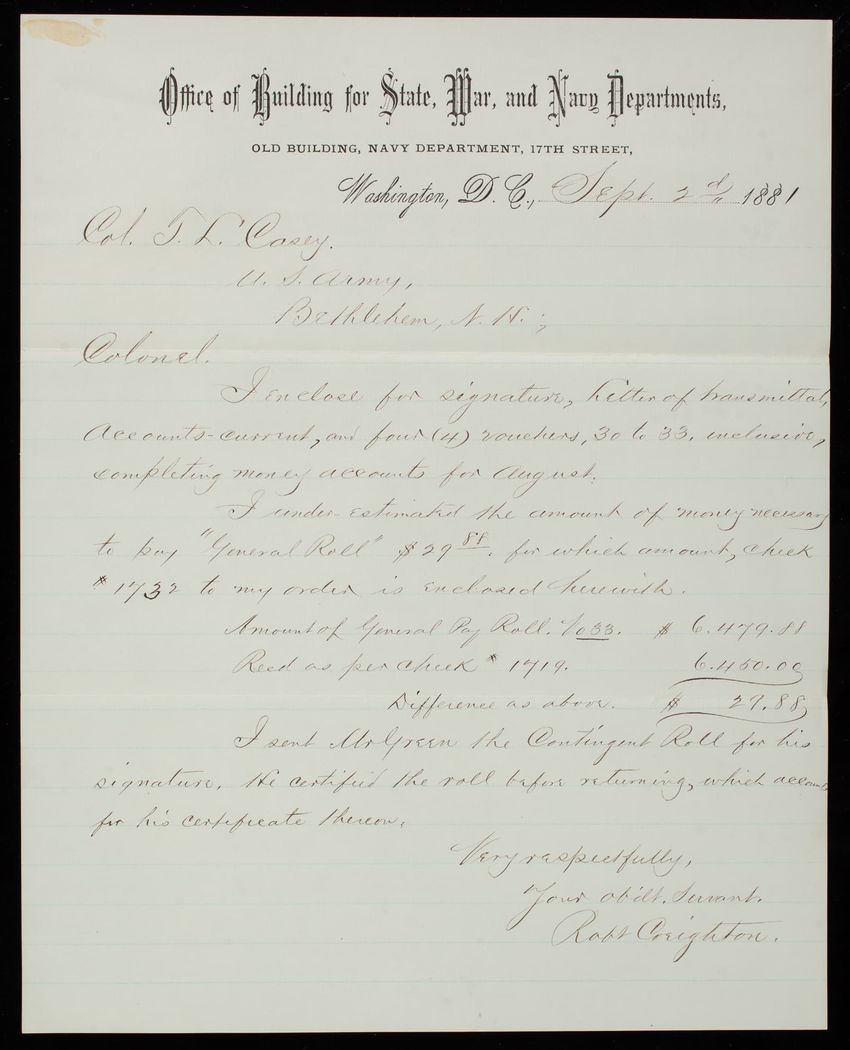 Office of Building for State, War, and Navy Departments,
OLD BUILDING, NAVY DEPARTMENT, 17TH STREET,
Washington, D. C., Sept. 2d, 1881
Col. T. L. Casey.
U. S. Army,
Bethlehem, N. H.;
Colonel.
I enclose for signature, Letter of transmittal,
Accounts-current, and four (4) vouchers, 30 to 33, inclusive,
completing money accounts for August.
I under-estimated the amount of money necessary
to pay "General Roll" $29 88. for which amount, check
# 1732 to my order is enclosed herewith.
Amount of General Pay Roll. No 33. $ 6.479.88
Recd as per check # 1719. 6.450.00
Difference as above. $ 29.88
I sent Mr Green the Contingent Roll for his
signature. He certified the roll before returning, which accounts
for his certificate thereon.
Very respectfully,
Your obdt. Servant.
Robt Creighton.